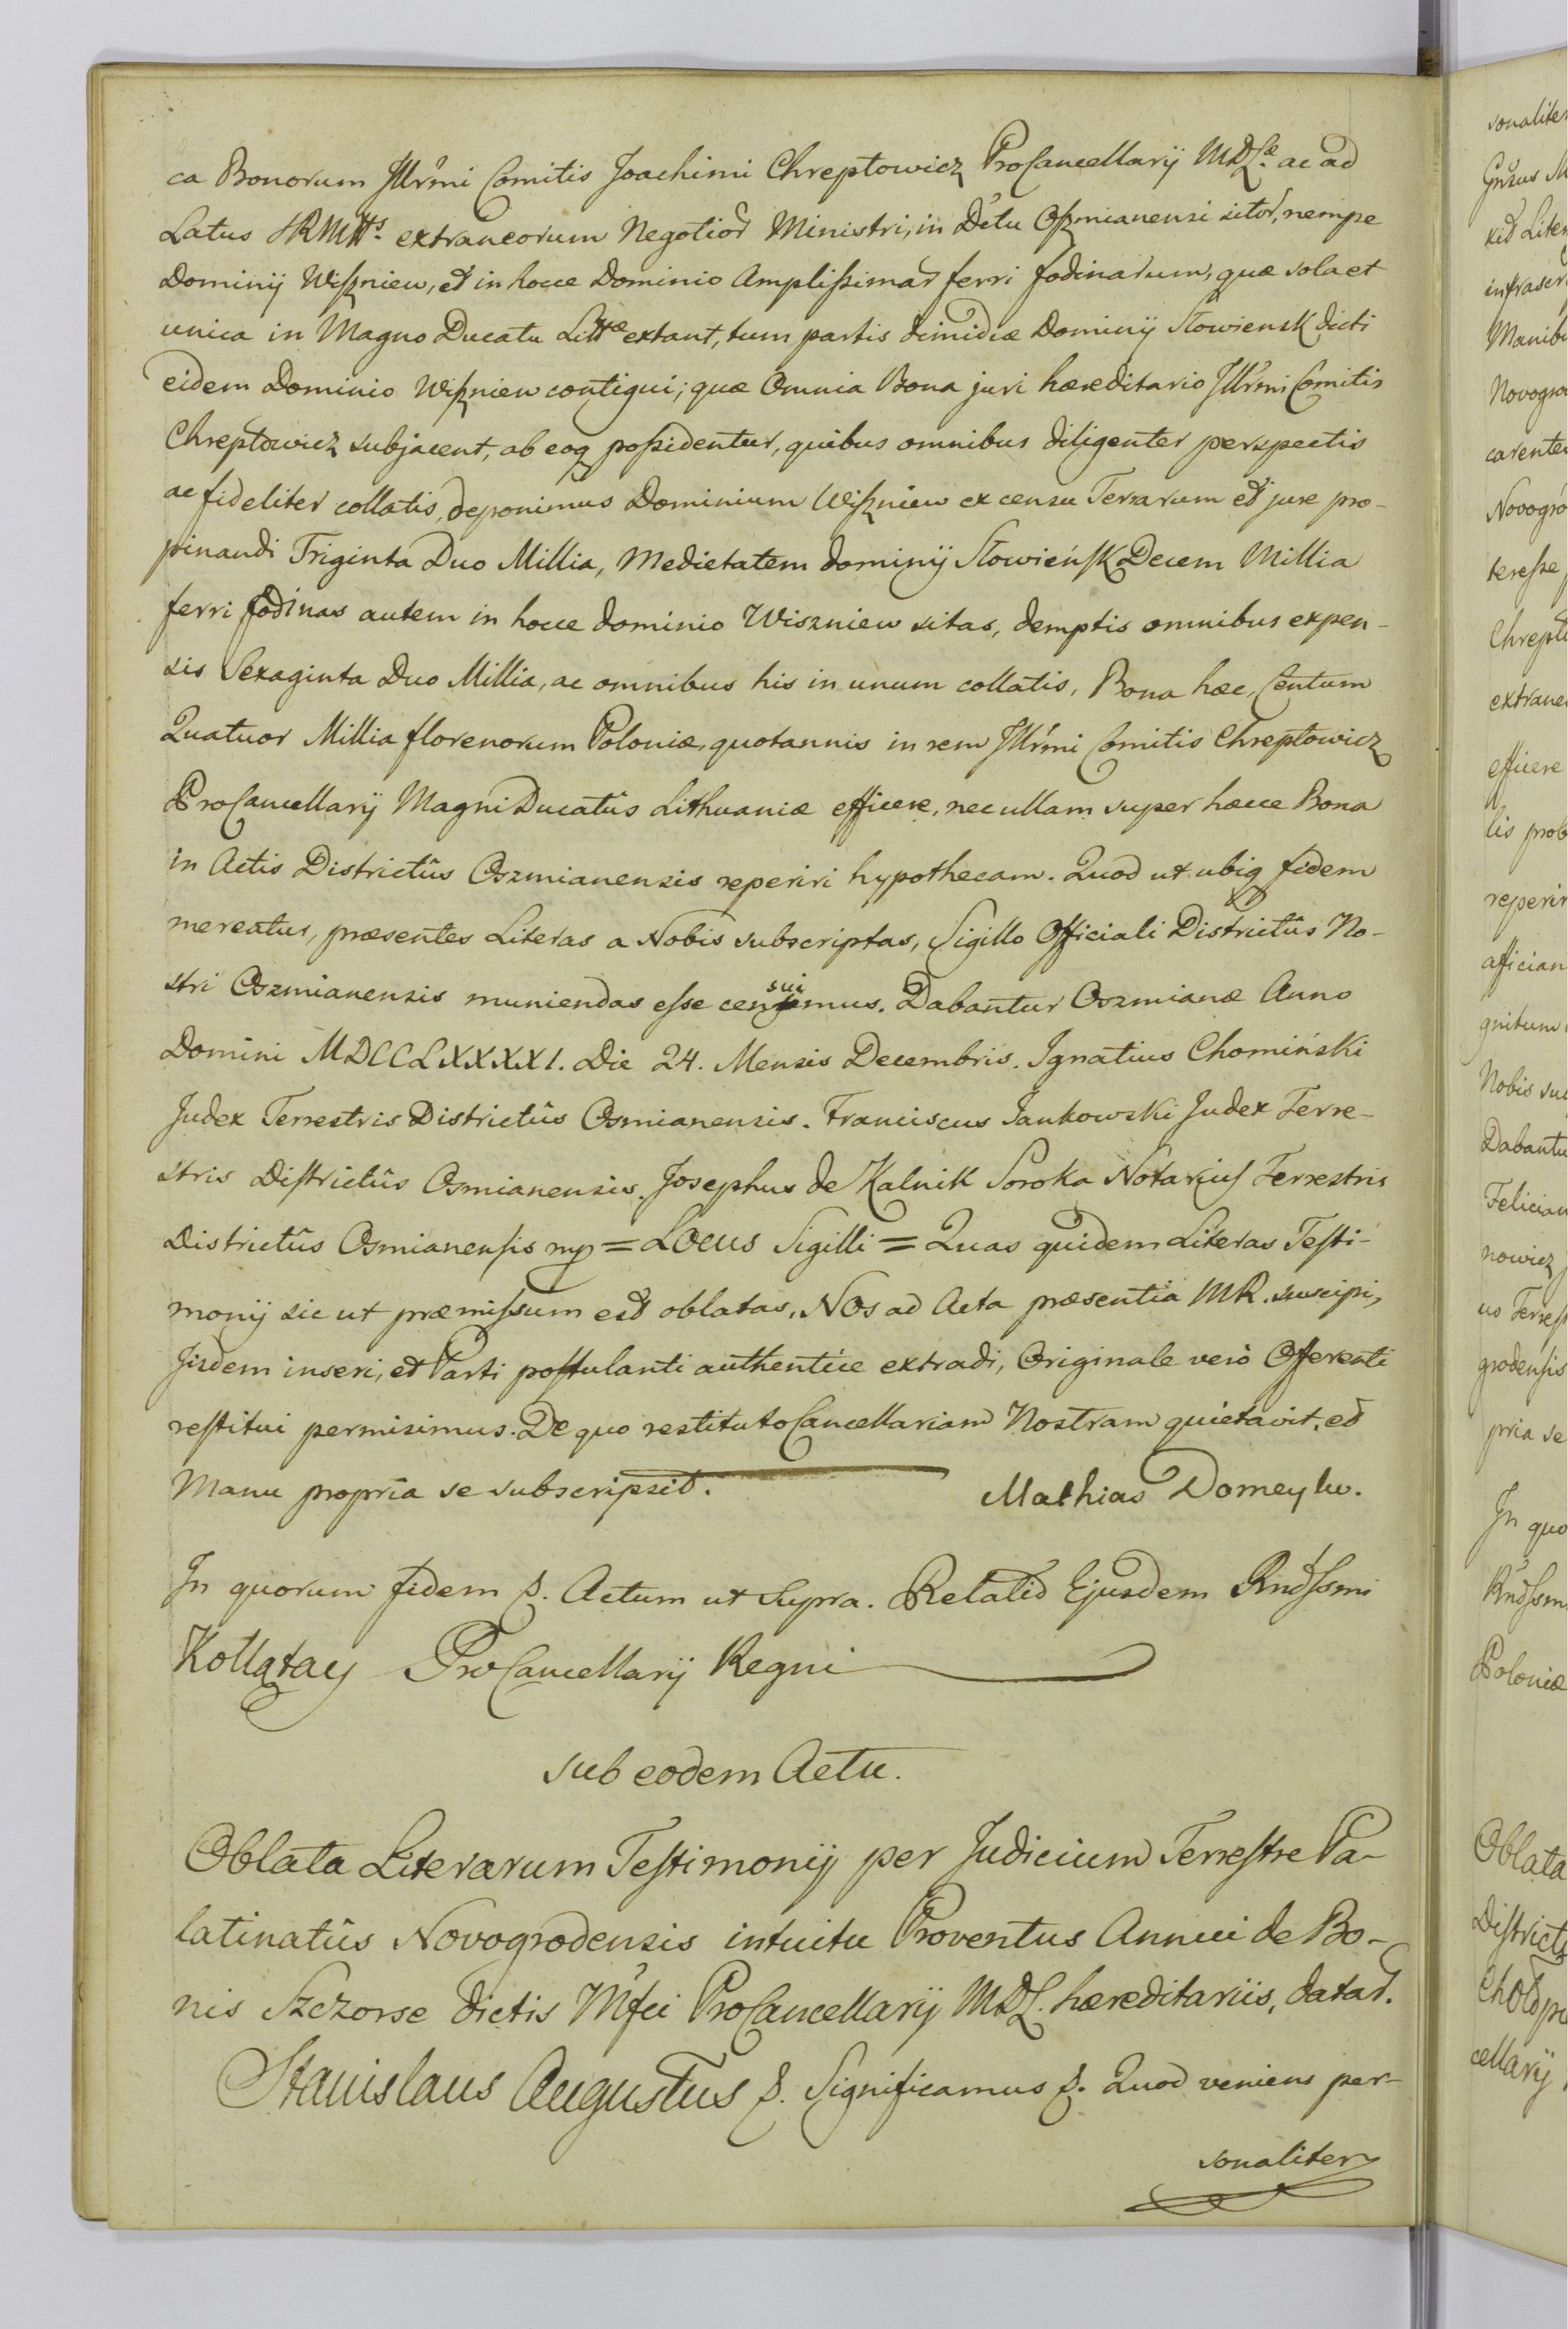 ca Bonorum Jllr̃mi Comitis Joachimi Chreptowicz ProCancellarij MDLæ. ac ad
Latus SRMtts. extraneorum Negotior̃ Ministri, in Dc̃tu Oszmianensi sitor̃, nempe
Dominij Wiszniew, et in hocce Dominio Amplissimar̃ ferri fodinarum, quæ sola et
unica in Magno Ducatu Littæ extant, tum partis dimidiæ Dominij Słowiensk dicti
eidem Dominio Wiszniew contigui; quæ Omnia Bona juri hæreditario Jllr̃mi Comitis
Chreptowicz subjacent, ab eoq possidentur, quibus omnibus diligenter perspectis
ac fideliter collatis, deponimus Dominium Wiszniew ex censu Terrarum et jure pro-
pinandi Triginta Duo Millia, Medietatem dominij Słowieńsk Decem Millia
ferri fodinas autem in hocce dominio Wiszniew sitas, demptis omnibus expen-
sis Sexaginta Duo Millia, ac omnibus his in unum collatis, Bona hæc, Centum
Quatuor Millia florenorum Poloniæ, quotannis in rem Jllr̃mi Comitis Chreptowicz
ProCancellarij Magni Ducatûs Lithuaniæ efficere, nec ullam super hæcce Bona
in Actis Districtûs Oszmianensis reperiri hypothecam. Quod ut ubiq fidem
mereatur, præsentes Literas a Nobis subscriptas, Sigillo Officiali Districtûs No-
stri Oszmianensis muniendas esse censuimus. Dabantur Oszmianæ Anno
Domini MDCCLXXXXI. Die 24. Mensis Decembris. Ignatius Chomiński
Judex Terrestris Districtûs Osmianensis. Franciscus Jankowski Judex Terre-
stris Districtûs Osmianensis. Josephus de Kalnik Soroka Notarius Terrestris
Districtûs Osmianensis mp = Locus Sigilli = Quas quidem Literas Testi-
monij sic ut præmissum est oblatas, Nos ad Acta præsentia MR. suscipi,
Jisdem inseri, et Parti postulanti authentice extradi, Originale verò Offerenti
restitui permisimus. De quo restituto Cancellariam Nostram quietavit, et
Manu propria se subscripsit. Mathias Domeyko.
In quorum fidem &. Actum ut Supra. Relatio Ejusdem Rnd̃ssmi
Kołłątay ProCancellarij Regni
sub eodem Actu.
Oblata Literarum Testimonij per Judicium Terrestre Pa-
latinatûs Novogrodensis intuitu Proventus Annui de Bo-
nis Szczorse dictis Mfci ProCancellarij MDL. hæreditariis, datar̃.
Stanislaus Augustus &. Significamus &. Quod veniens per-
sonaliter